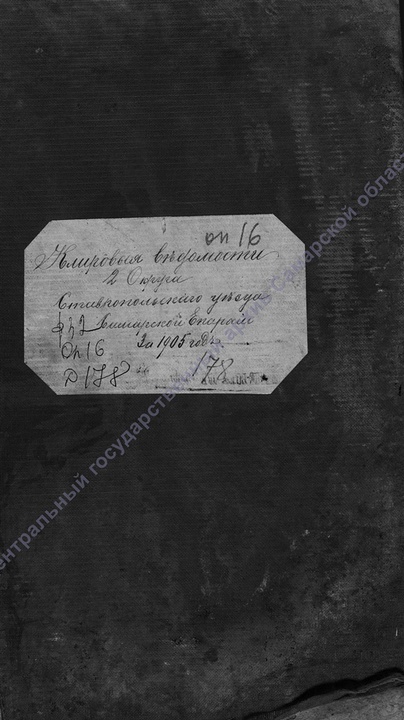 оп 16
Клировыя вѣдомости
2 Округа
Ставропольскаго уѣзда
Самарской Епархіи
За 1905 годъ
Оп 16
D 178
178
Центральный государственный архив Самарской облас